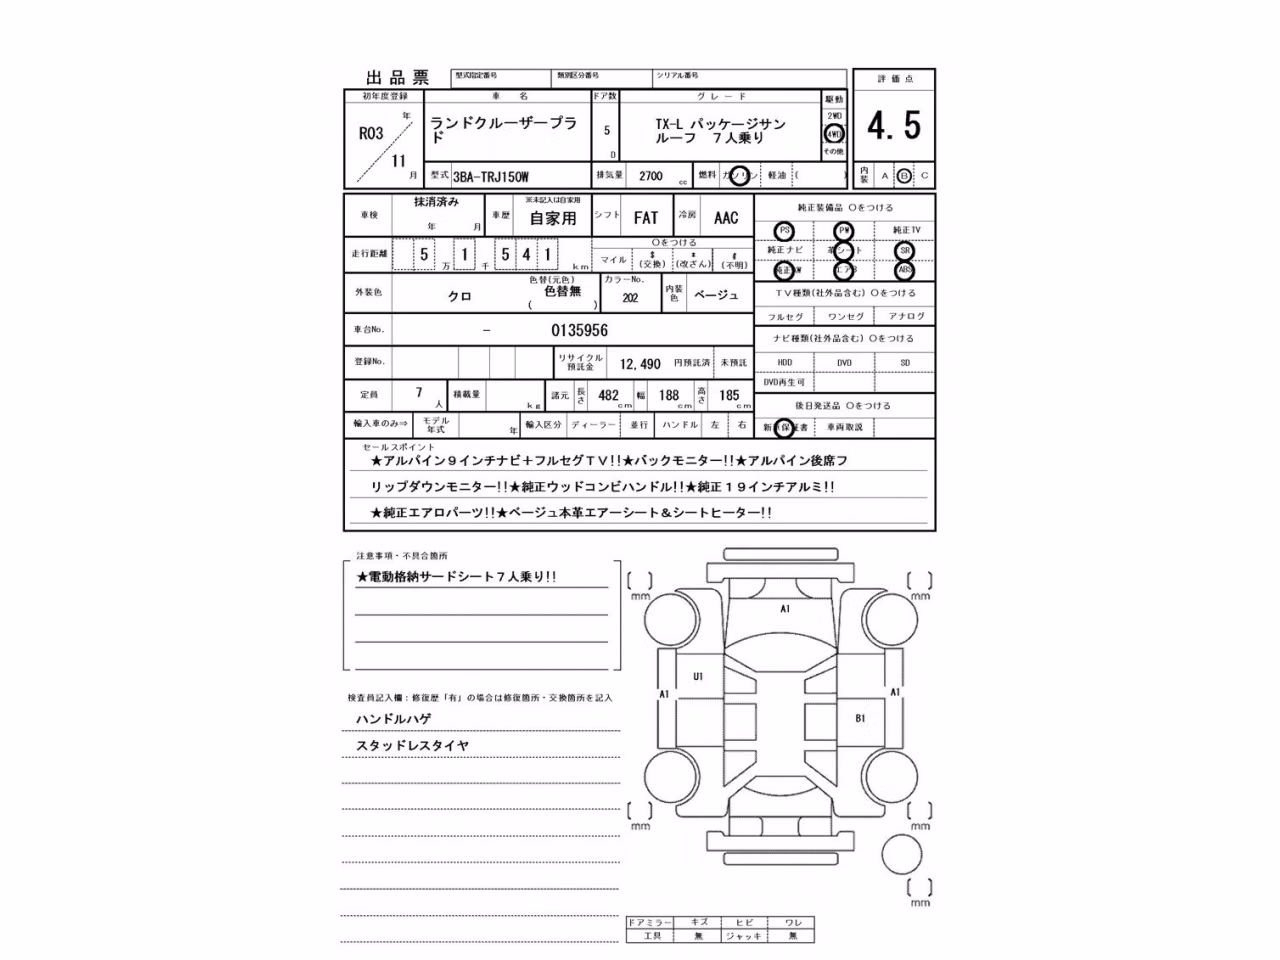 出品票
型式指定番号 類別区分番号 シリアル番号
評価点
初年度登録 車名 ドア数 グレード 駆動
R03 年 11 月
ランドクルーザープラ
ド
5 D
TX-L パッケージサン
ルーフ 7人乗り
2WD
4WD
その他
4.5
型式 3BA-TRJ150W 排気量 2700 cc 燃料 ガソリン 軽油 ( )
内装 A B C
車検 抹消済み 年 月 車歴 ※未記入は自家用 自家用 シフト FAT 冷房 AAC
純正装備品 ○をつける
PS PW 純正TV
走行距離 5 万 1 千 5 4 1 km
○をつける
マイル $(交換) *(改ざん) #(不明)
純正ナビ 革シート SR
純正AW エアB ABS
外装色 クロ 色替(元色) 色替無 ( ) カラーNo. 202 内装色 ベージュ
TV種類(社外品含む) ○をつける
フルセグ ワンセグ アナログ
車台No. - 0135956
ナビ種類(社外品含む) ○をつける
登録No. リサイクル預託金 12,490 円預託済 未預託
HDD DVD SD
DVD再生可
定員 7 人 積載量 kg 諸元 長さ 482 cm 幅 188 cm 高さ 185 cm
後日発送品 ○をつける
輸入車のみ⇒ モデル年式 年 輸入区分 ディーラー 並行 ハンドル 左 右
新車保証書 車両取説
セールスポイント
★アルパイン9インチナビ+フルセグTV!!★バックモニター!!★アルパイン後席フ
リップダウンモニター!!★純正ウッドコンビハンドル!!★純正19インチアルミ!!
★純正エアロパーツ!!★ベージュ本革エアーシート&シートヒーター!!
注意事項・不具合箇所
★電動格納サードシート7人乗り!!
検査員記入欄:修復歴「有」の場合は修復箇所・交換箇所を記入
ハンドルハゲ
スタッドレスタイヤ
mm mm
A1
U1
A1 A1
B1
mm mm
mm
ドアミラー キズ ヒビ ワレ
工具 無 ジャッキ 無